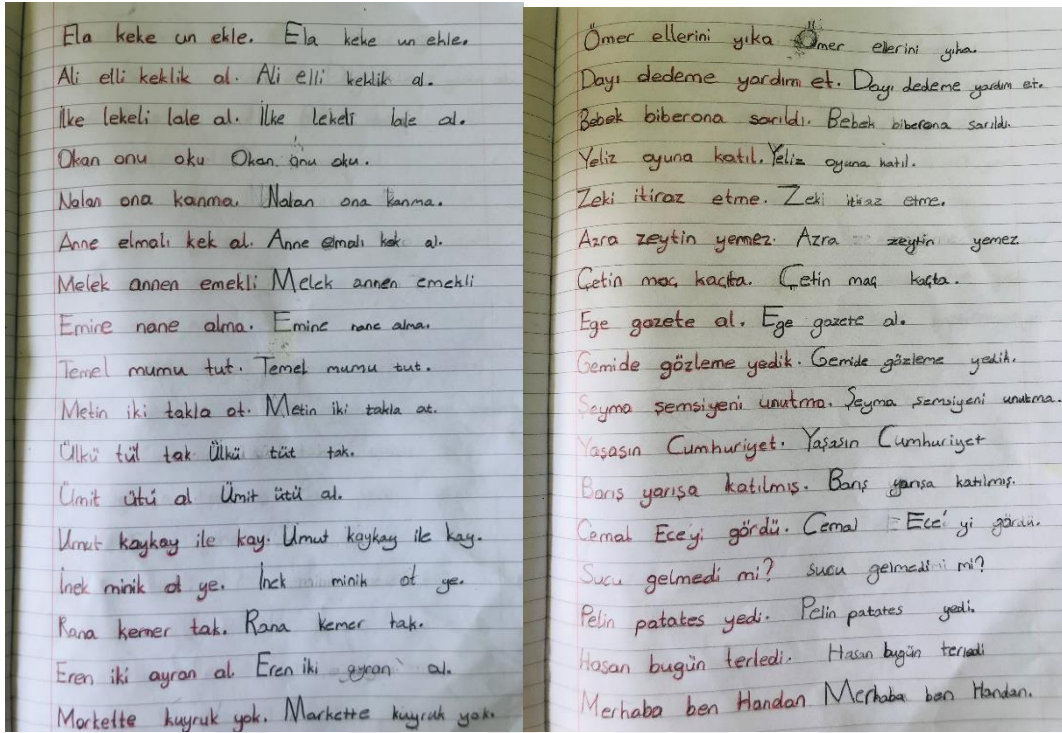 Ela keke un ekle. Ela keke un ekle.
Ali elli keklik al. Ali elli keklik al.
İlke lekeli lale al. İlke lekeli lale al.
Okan onu oku Okan onu oku.
Nalan ona kanma. Nalan ona kanma.
Anne elmalı kek al. Anne elmalı kek al.
Melek annen emekli Melek annen emekli
Emine nane alma. Emine nane alma.
Temel mumu tut. Temel mumu tut.
Metin iki takla at. Metin iki takla at.
Ülkü tül tak Ülkü tüt tak.
Ümit ütü al Ümit ütü al.
Umut kaykay ile kay. Umut kaykay ile kay.
İnek minik ot ye. İnek minik ot ye.
Rana kemer tak. Rana kemer tak.
Eren iki ayran al. Eren iki ayran al.
Markette kuyruk yok. Markette kuyruk yok.
Ömer ellerini yıka Ömer ellerini yıka.
Dayı dedeme yardım et. Dayı dedeme yardım et.
Bebek biberona sarıldı. Bebek biberona sarıldı.
Yeliz oyuna katıl. Yeliz oyuna katıl.
Zeki itiraz etme. Zeki itiraz etme.
Azra zeytin yemez. Azra zeytin yemez
Çetin maç kaçta. Çetin maç kaçta.
Ege gazete al. Ege gazete al.
Gemide gözleme yedik. Gemide gözleme yedik.
Şeyma şemsiyeni unutma. Şeyma şemsiyeni unutma.
Yaşasın Cumhuriyet. Yaşasın Cumhuriyet
Barış yarışa katılmış. Barış yarışa katılmış.
Cemal Ece'yi gördü. Cemal Ece'yi gördü.
Sucu gelmedi mi? sucu gelmedi mi?
Pelin patates yedi. Pelin patates yedi.
Hasan bugün terledi. Hasan bugün terledi
Merhaba ben Handan Merhaba ben Handan.